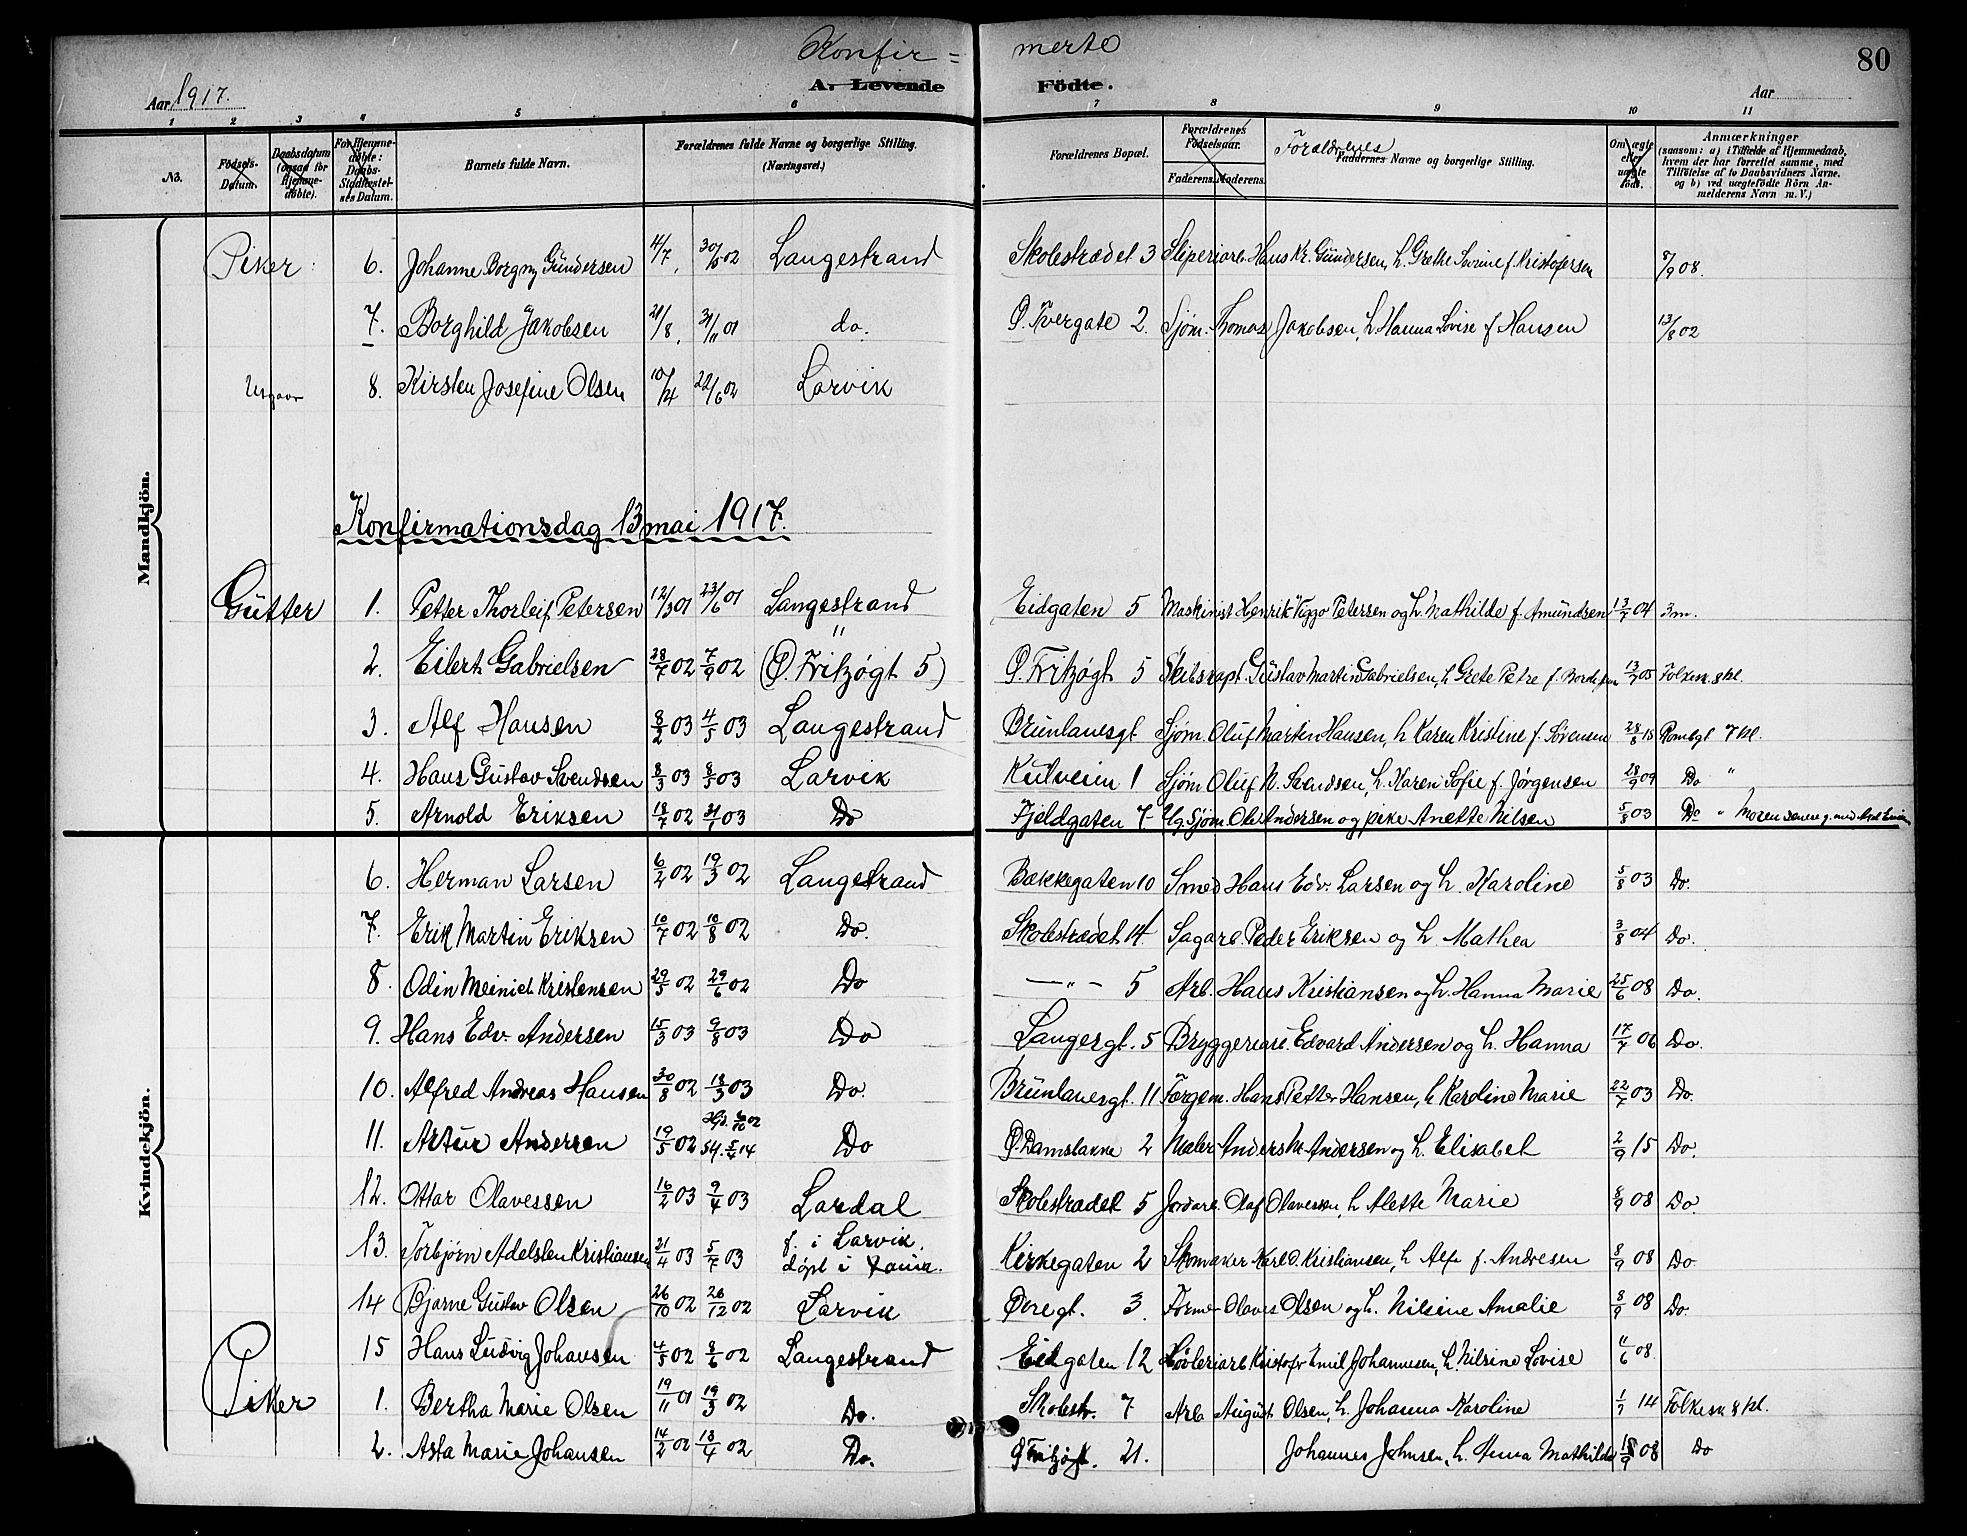 Konfir = merte
80
A. Levende Födte.
Aar 1917. Aar
1 2 3 4 5 6 7 8 9 10 11
No. Födsels-Datum. Daabsdatum (ogsaa for Hjemme-döbte). For Hjemme-döbte: Daabs-Stadfæstel-ses Datum. Barnets fulde Navn. Forældrenes fulde Navne og borgerlige Stilling. (Næringsvei.) Forældrenes Bopæl. Forældrenes Födselsaar. Faderens. Moderens. Forældrenes Faddernes Navne og borgerlige Stilling. Om ægte eller uægte födt. Anmærkninger (saasom: a) i Tilfælde af Hjemmedaab, hvem der har forrettet samme, med Tilföielse af to Daabsvidners Navne. og b) ved uægtefödte Börn An-melderens Navn m. V.)
Mandkjön.
Piker: 6. Johanne Borgny Gundersen 4/7, 02 Langestrand Skolestrædet 3 Sliperiarb. Hans Kr. Gundersen, h. Grethe Sevrine f. Kristofersen /9 08.
7. Borghild Jakobsen 21/8, 31/11 01 do. Ø. Tvergate 2. Sjøm. Thomas Jakobsen, h. Hanna Lovise f. Hansen 13/8 02
8. Kirsten Josefine Olsen 10/4 22/6 02 Larvik
Konfirmationsdag 13 mai 1917.
Gutter 1. Petter Thorleif Petersen 12/3 01 23/6 01 Langestrand Eidgaten 5 Maskinist Henrik Viggo Petersen og h. Mathilde f. Amundsen 13/7 04 3m.
2. Eilert Gabrielsen 28/7 02 7/9 02 " (Ø. Fritzøgt 5) Ø. Fritzøgt 5 Skibskapt. Gustav Martin Gabrielsen, h. Grete Petre f. 13/7 05 Folkesk. 8 kl.
3. Alf Hansen 8/2 03 4/5 03 Langestrand Brunlanesgt Sjøm. Oluf Martin Hansen, h. Karen Kristine f. Sørensen 28/8 15 7 kl.
4. Hans Gustav Svendsen 8/3 03 8/5 03 Larvik 1 Sjøm. Oluf N. Svendsen, h. Karen Sofie f. Jørgensen 28/9 09 Do "
5. Arnold Eriksen 18/7 02 31/1 03 Do Fjeldgaten 7 Ug. Sjøm. Ole Andersen og pike Anette Nilsen 5/8 03 Do " Moren senere g. med
Kvindekjön.
6. Herman Larsen 6/2 02 19/3 02 Langestrand Bækkegaten 10 Smed Hans Edv. Larsen og h. Karoline 5/8 03 Do.
7. Erik Martin Eriksen 10/7 02 10/8 02 Do. Skolestrædet 14 Sagarb. Peder Eriksen og h. Mathea 3/8 04 Do.
8. Odin Meinich Kristensen 29/5 02 29/6 02 Do — " — 5 Arb. Hans Kristiansen og h. Hanna Marie 25/6 08 Do.
9. Hans Edv. Andersen 15/3 03 9/8 03 Do Langesgt. 5 Bryggeriarb. Edvard Andersen og h. Hanna 17/7 06 Do.
10. Alfred Andreas Hansen 30/8 02 18/3 03 Do. Brunlanesgt. 11 Førgem. Hans Petter Hansen, h. Karoline Marie 22/7 03 Do.
11. Artur Andersen 19/5 02 Hjd. 02 St. 5/4 14 Do Ø. Damsbakke 2 Maler Anders M. Andersen og h. Elisabet 2/9 15 Do.
12. Ottar Olavessen 16/2 03 9/4 03 Lardal Skolestrædet 5 Jordarb. Olaf Olavessen, h. Alette Marie 8/9 08 Do.
13. Torbjørn Adelsten Kristiansen 21/4 03 5/7 03 f. i Larvik, døpt i Skomaker Karl O. Kristiansen, h. Alfa f. Andresen Kirkegaten 2 8/9 08 Do.
14 Bjarne Gustav Olsen 26/10 02 26/12 02 Larvik Øvregt. 3. Former Olaves Olsen og h. Nilsine Amalie 8/9 08 Do.
15 Hans Ludvig Johansen 4/5 02 8/6 02 Langestrand Eidgaten 12 Høvleriarb. Kristofr Emil Johannesen, h. Nilsine Lovise 11/6 08.
Piker 1. Bertha Marie Olsen 19/11 01 19/3 02 Do. Skolestr. 7 Arb. August Olsen, h. Johanna Karoline 1/9 14 Folkesk. 8 kl.
2. Asta Marie Johansen 14/2 02 13/4 02 Do. Ø Fritzøgt. 21. Johannes Johnsen, h. Anna Mathilde 08 Do